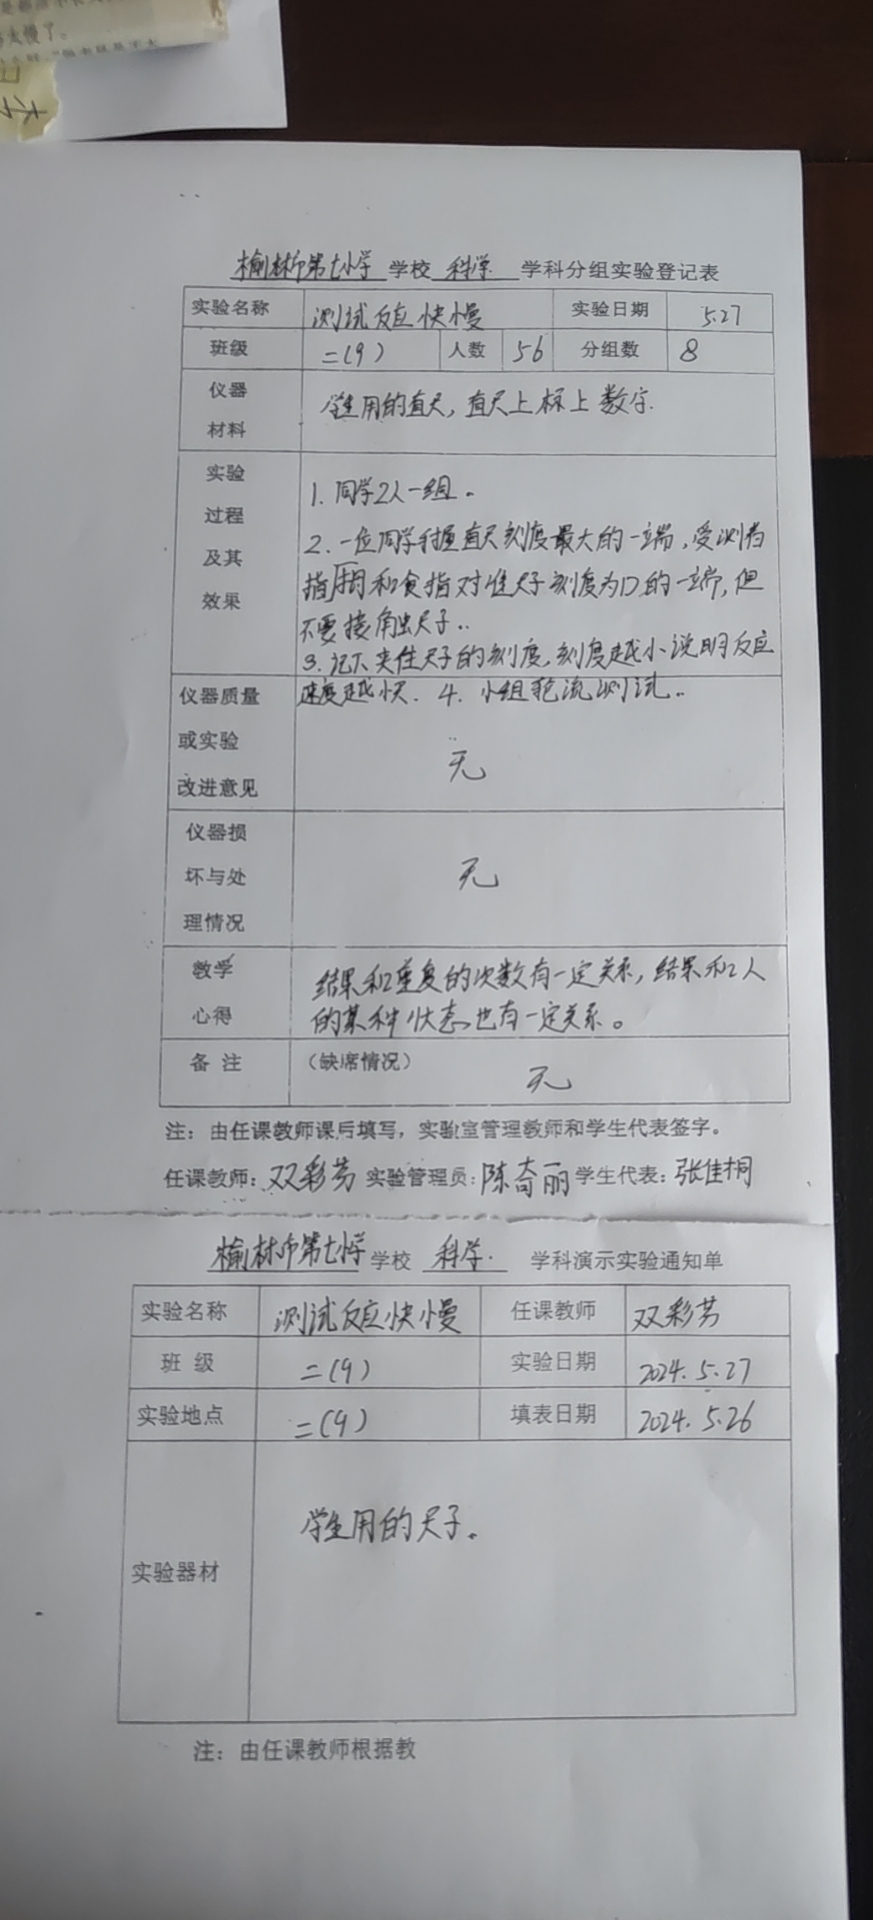 太慢了。
榆林市第七小学 学校 科学 学科分组实验登记表
实验名称 测试反应快慢 实验日期 5.27
班级 二(9) 人数 56 分组数 8
仪器
材料
学生用的直尺，直尺上标上数字.
实验
过程
及其
效果
1. 同学2人一组。
2. 一位同学手握直尺刻度最大的一端，受测者
拇指和食指对准尺子刻度为0的一端，但
不要接触尺子..
3. 记下夹住尺子的刻度，刻度越小说明反应
速度越快. 4. 小组轮流测试..
仪器质量
或实验
改进意见
无
仪器损
坏与处
理情况
无
教学
心得
结果和重复的次数有一定关系，结果和2人
的某种状态也有一定关系。
备 注 （缺席情况） 无
注：由任课教师课后填写，实验室管理教师和学生代表签字。
任课教师：双彩芳 实验管理员：陈奇丽 学生代表：张佳桐
榆林市第七小学 学校 科学. 学科演示实验通知单
实验名称 测试反应快慢 任课教师 双彩芳
班 级 二(9) 实验日期 2024.5.27
实验地点 二(9) 填表日期 2024.5.26
实验器材 学生用的尺子。
注：由任课教师根据教